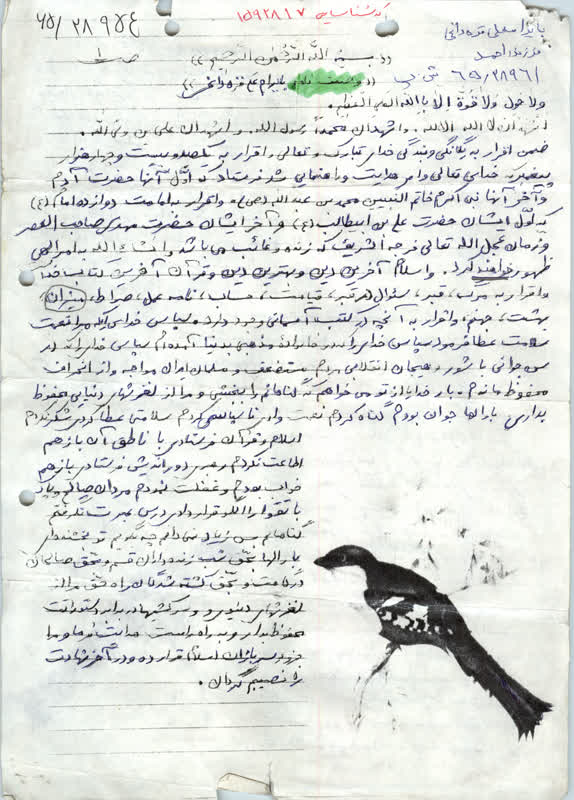 کد شناسایی ۱۵۹۲۸۱۷
۶۵/۲۸۹۵۴
ص ۱
فرزند احمد
۶۵/۲۸۹۶۱
((بسم الله الرحمن الرحیم))
((وصیت نامه بایرام علی قره داغی))
ولا حول ولا قوة الا بالله العلی العظیم
اشهد ان لا اله الا الله. واشهد ان محمداً رسول الله. و اشهد ان علی ولی الله.
ضمن اقرار به یگانگی وبندگی خدای تبارک و تعالی و اقرار به یکصد و بیست و چهار هزار
پیغمبر خدای تعالی که برای هدایت و راهنمایی بشر فرستاد که اوّل آنها حضرت آدم
وآخر آنها نبی اکرم خاتم النبیین محمد بن عبدالله (ص)، و اقرار به امامت دوازده امام (ع)
که اوّل ایشان حضرت علی بن ابیطالب (ع) و آخر ایشان حضرت مهدی صاحب العصر
و زمان عجل الله تعالی فرجه الشریف که زنده و غائب می باشد وانشاءالله به امر الهی
ظهور خواهند کرد. و اسلام آخرین دین و بهترین دین و قرآن آخرین کتاب خدا
و اقرار به مرگ، قبر، سئوال در قبر، قیامت، حساب، نامه عمل، صراط، میزان،
بهشت، جهنم، و اقرار به آنچه که در کتب آسمانی وجود دارد. و سپاس خدای را که مرا نعمت
سلامت عطا فرمود سپاس خدای را که در خانواده مذهبی بدنیا آمدم سپاس خدای را که در
سن جوانی با شور و هیجان انقلابی مردم مستضعف و مسلمان ایران مواجه و از انحراف
محفوظ ماندم. بار خدایا از تو می خواهم که گناهانم را ببخشی و مرا از لغزشهای دنیایی محفوظ
بداری. بارالها جوان بودم گناه کردم نعمت دادی ناسپاسی کردم سلامتی عطا کردی شکر نکردم
اسلام و قرآن فرستادی با ناطق آن بازهم
اطاعت نکردم رهبری دوراندیش فرستادی بازهم
خواب بودم و غفلت نمودم مردان صالح و پاک
با تقوا را الگو قرار دادی درس عبرت نگرفتم
گناهانم بس زیاد نمی دانم چه بگویم تو بخشنده ای
بارالها بحق شب زنده داران قسم و بحق صالحان
درگاهت و بحق کشته شدگان راه حق مرا از
لغزشهای دنیوی و سرکشیها در برابر دستوراتت
محفوظ بدار و به راه راست هدایت فرما و مرا
جزو سربازان اسلام قرار ده و در آخر شهادت
را نصیبم گردان.